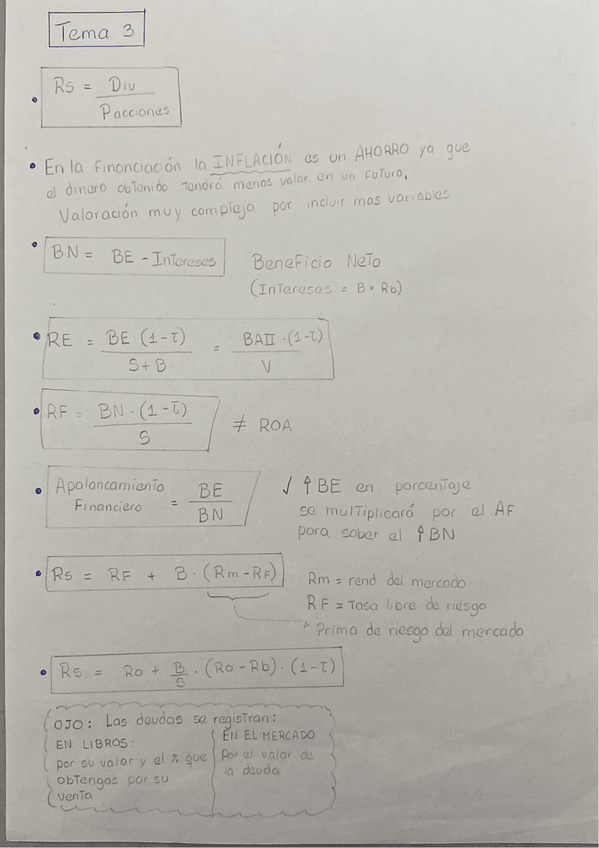 Tema 3
• Rs = Div / Pacciones
• En la Financiación la INFLACIÓN es un AHORRO ya que
el dinero obtenido tendrá menos valor en un futuro.
Valoración muy compleja por incluir mas variables
• BN = BE - Intereses Beneficio Neto
(Intereses = B × Rb)
• RE = BE (1-τ) / S+B = BAII · (1-τ) / V
• RF = BN · (1-τ) / S ≠ ROA
• Apalancamiento Financiero = BE / BN
√ ↑BE en porcentaje
se multiplicará por el AF
para saber el ↑BN
• Rs = RF + B · (Rm - RF)
Rm = rend del mercado
RF = Tasa libre de riesgo
Prima de riesgo del mercado
• Rs = Ro + B/S · (Ro - Rb) · (1-τ)
OJO: Las deudas se registran:
EN LIBROS:
por su valor y el % que
obtengas por su
venta
EN EL MERCADO
Por el valor de
la deuda